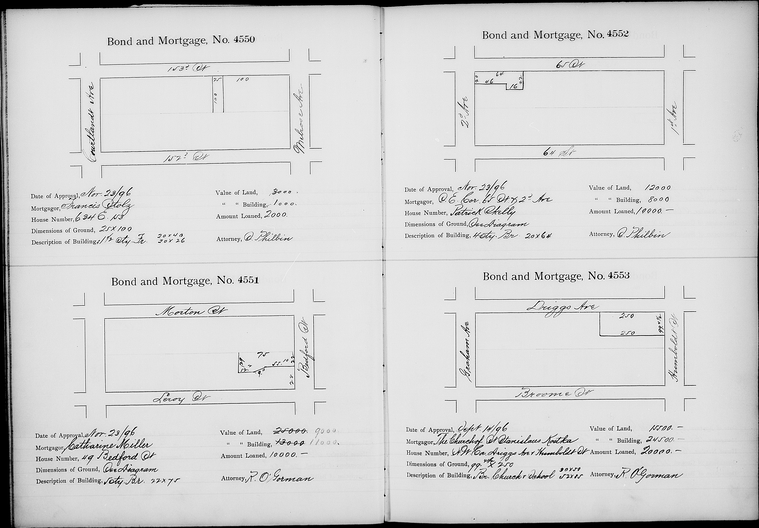 Bond and Mortgage, No. 4550
153d St
25 100
100
Courtlandt Ave
Melrose Ave
152d St
Date of Approval, Nov. 23/96
Mortgagor, Francis Stolz
House Number, 634 E. 153
Dimensions of Ground, 25 x 100
Description of Building, 1 1/2 Sty Fr 20 x 40
20 x 26
Value of Land, 3000.
" " Building, 1000.
Amount Loaned, 2000.
Attorney, O. Philbin
Bond and Mortgage, No. 4551
Morton St
75
Bedford St
22
Leroy St
Date of Approval, Nov. 23/96
Mortgagor, Catharine Miller
House Number, 49 Bedford St
Dimensions of Ground, On Diagram
Description of Building, Sty Br. 22 x 75
Value of Land, 25000. 9000.
" " Building, 13000 11000.
Amount Loaned, 10000.—
Attorney, R. O'Gorman
Bond and Mortgage, No. 4552
65 St
64
46
16
2d Ave
1st Ave
64 St
Date of Approval, Nov 23/96
Mortgagor, S. E. Cor. 65 St & 2d Ave
House Number, Patrick Skelly
Dimensions of Ground, On Diagram
Description of Building, 4 Sty. Br 20 x 64
Value of Land, 12000
" " Building, 8000
Amount Loaned, 10000.—
Attorney, O. Philbin
Bond and Mortgage, No. 4553
Driggs Ave
250
250
Graham Ave
Humboldt St
Broome St
Date of Approval, Sept 14/96
Mortgagor, The Church of St Stanislaus Kostka
House Number, N.W. Co. Driggs Ave & Humboldt St
Dimensions of Ground, 99 x 250
Description of Building, Br. Church & School
Value of Land, 11500.—
" " Building, 24500.—
Amount Loaned, 20000.—
Attorney, R. O'Gorman